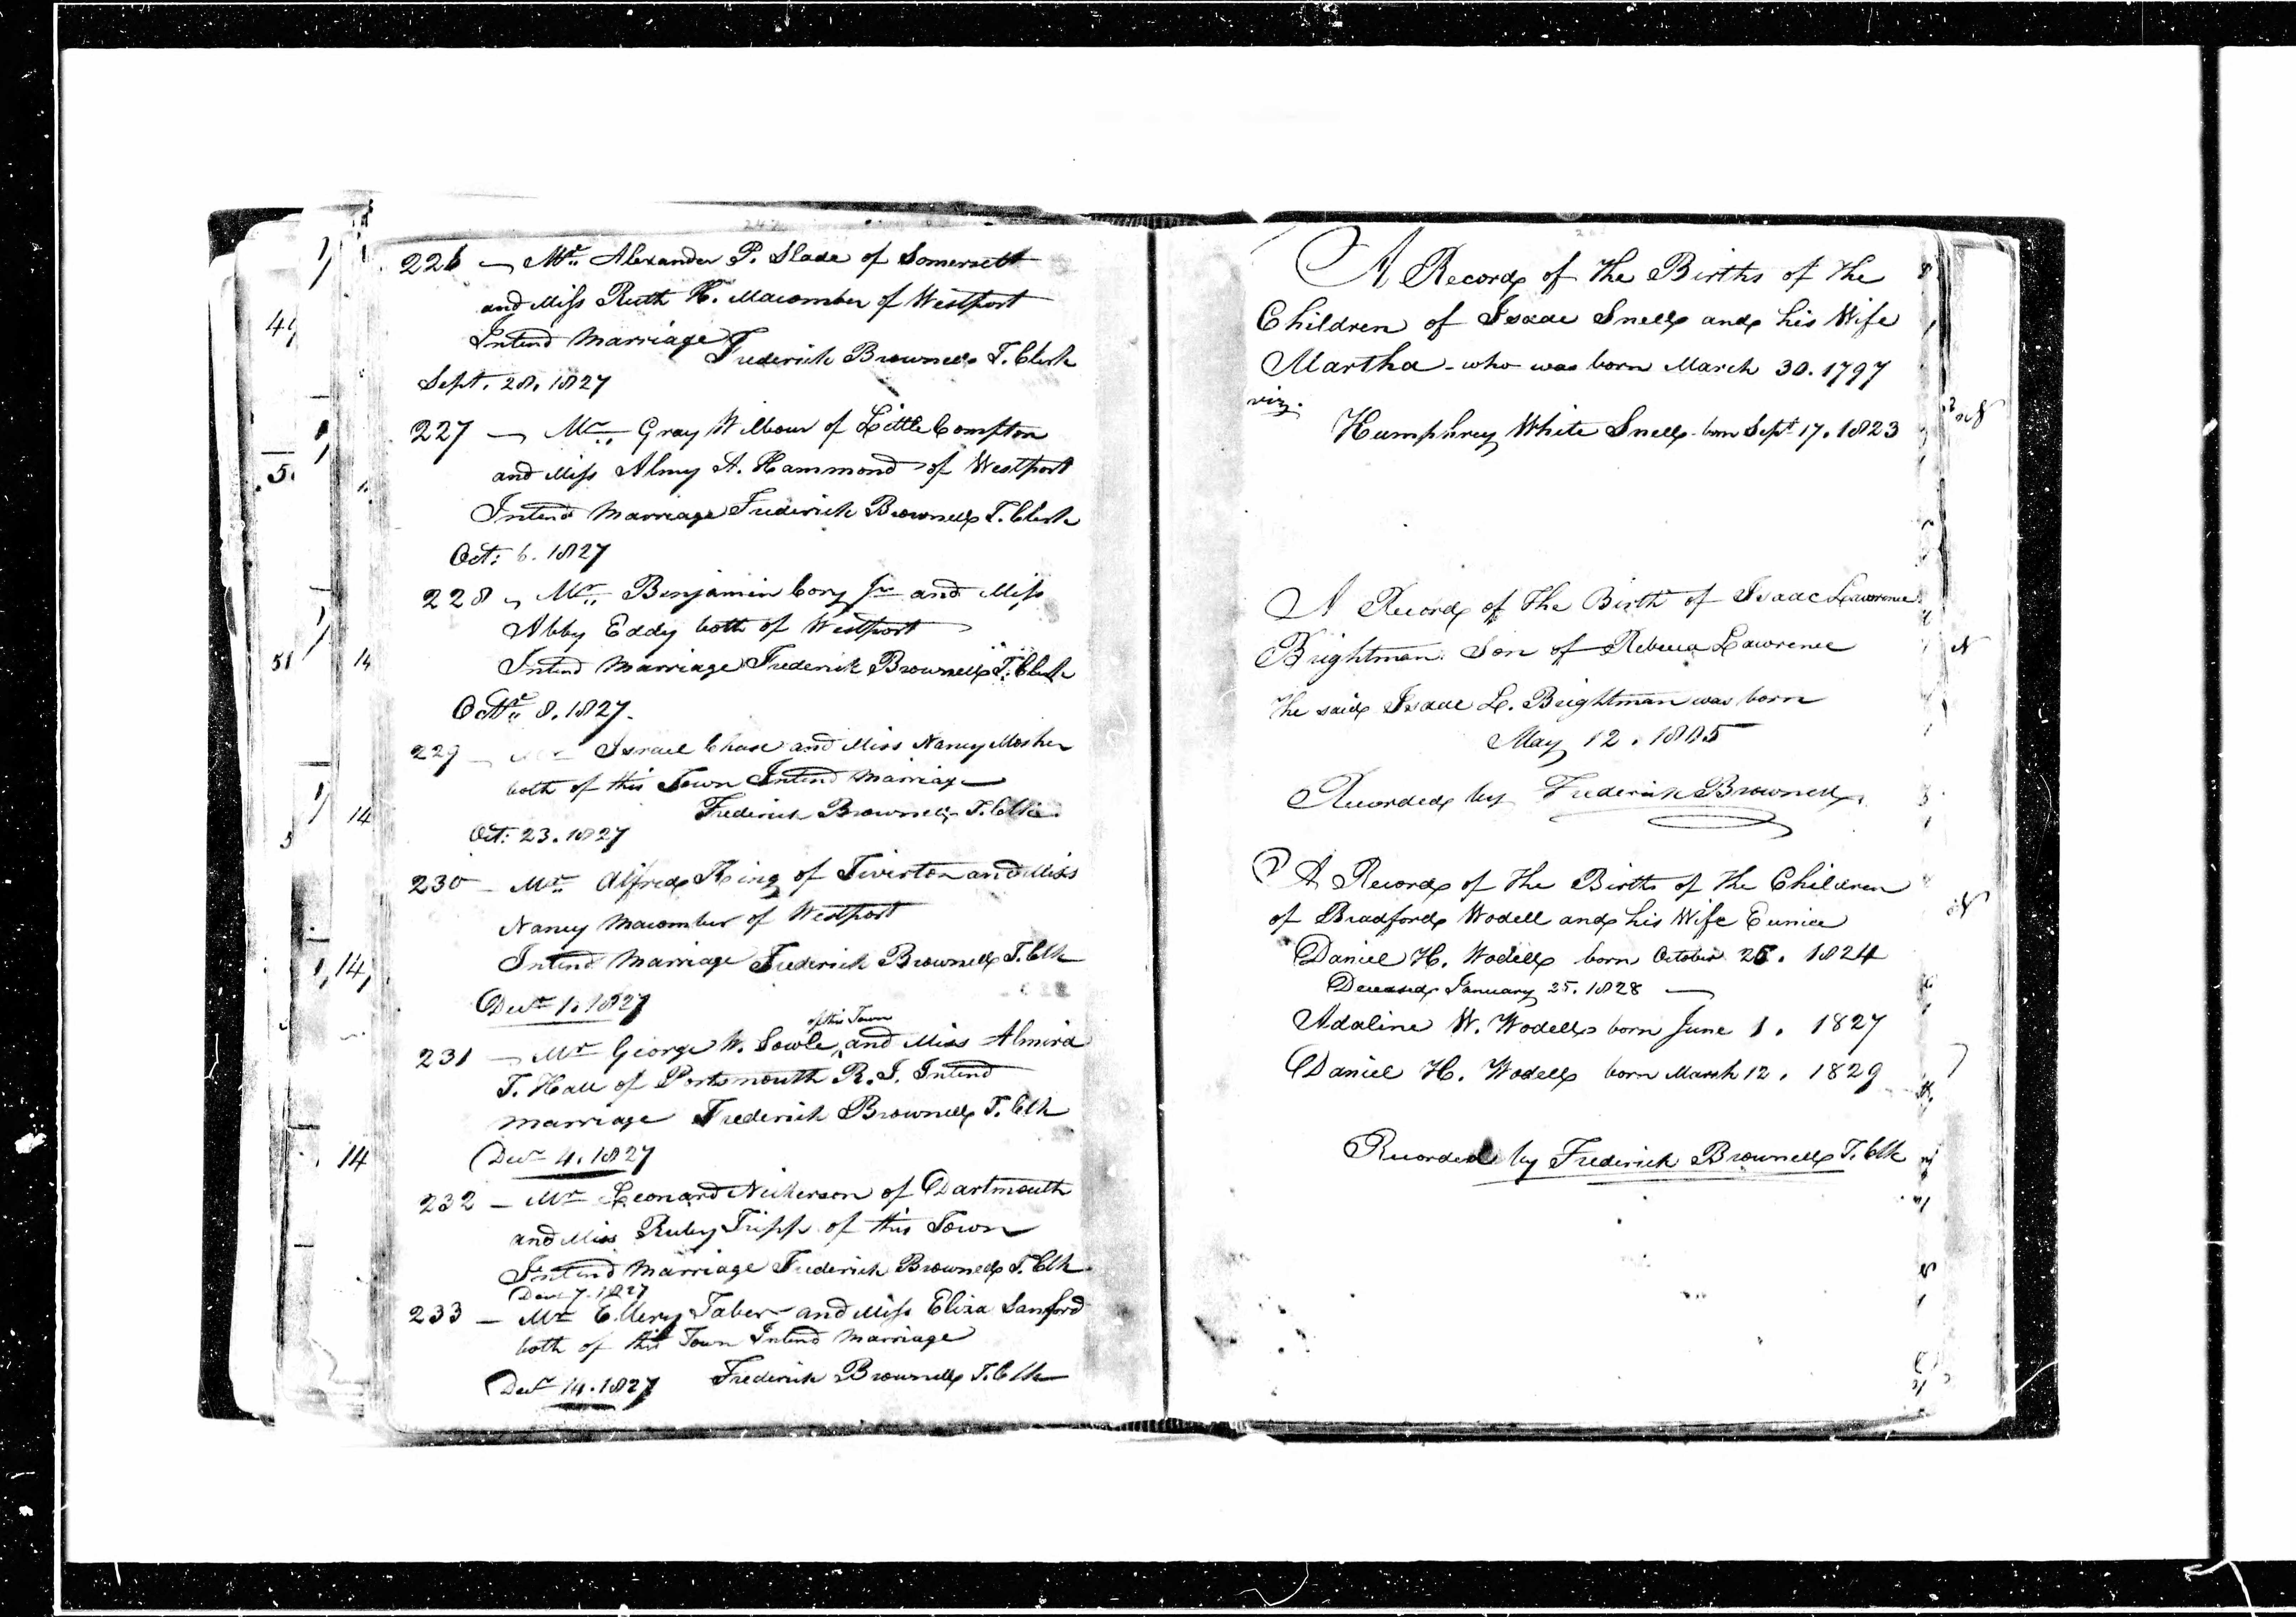 226 — Mr. Alexander P. Slade of Somersett
and Miss Ruth H. Macomber of Westport
Intend Marriage
Frederick Brownell T. Clerk
Sept. 28. 1827
227 — Mr. Gray Wilbour of Little Compton
and Miss Almy A. Hammond of Westport
Intend Marriage Frederick Brownell T. Clerk
Oct: 6. 1827
228 — Mr. Benjamin Cory Jr. and Miss
Abby Eddy both of Westport
Intend Marriage Frederick Brownell T. Clerk
Octr. 8. 1827.
229 — Mr Israel Chase and Miss Nancy Mosher
both of this Town Intend Marriage
Frederick Brownell T. Clk
Oct: 23. 1827
230 — Mr. Alfred King of Tiverton and Miss
Nancy Macomber of Westport
Intend Marriage Frederick Brownell T. Clk
Decr 1. 1827
of this Town
231 — Mr George W. Sowle and Miss Almira
T. Hall of Portsmouth R. I. Intend
Marriage Frederick Brownell T. Clk
Decr 4. 1827
232 — Mr Leonard Nickerson of Dartmouth
and Miss Ruby Tripp of this Town
Intend Marriage Frederick Brownell T. Clk
Decr 7. 1827
233 — Mr Ellery Taber and Miss Eliza Sanford
both of this Town Intend Marriage
Decr 14. 1827 Frederick Brownell T. Clk
A Record of the Births of the
Children of Isaac Snell and his Wife
Martha - who was born March 30. 1797
viz.
Humphrey White Snell born Sept 17. 1823
A Record of the Birth of Isaac Lawrence
Brightman Son of Rebecca Lawrence
The said Isaac L. Brightman was born
May 12. 1805
Recorded by Frederick Brownell
A Record of the Births of the Children
of Bradford Wodell and his Wife Eunice
Daniel H. Wodell born October 25. 1824
Deceased January 25. 1828
Adaline W. Wodell born June 1. 1827
Daniel H. Wodell born March 12. 1829
Recorded by Frederick Brownell T. Clk